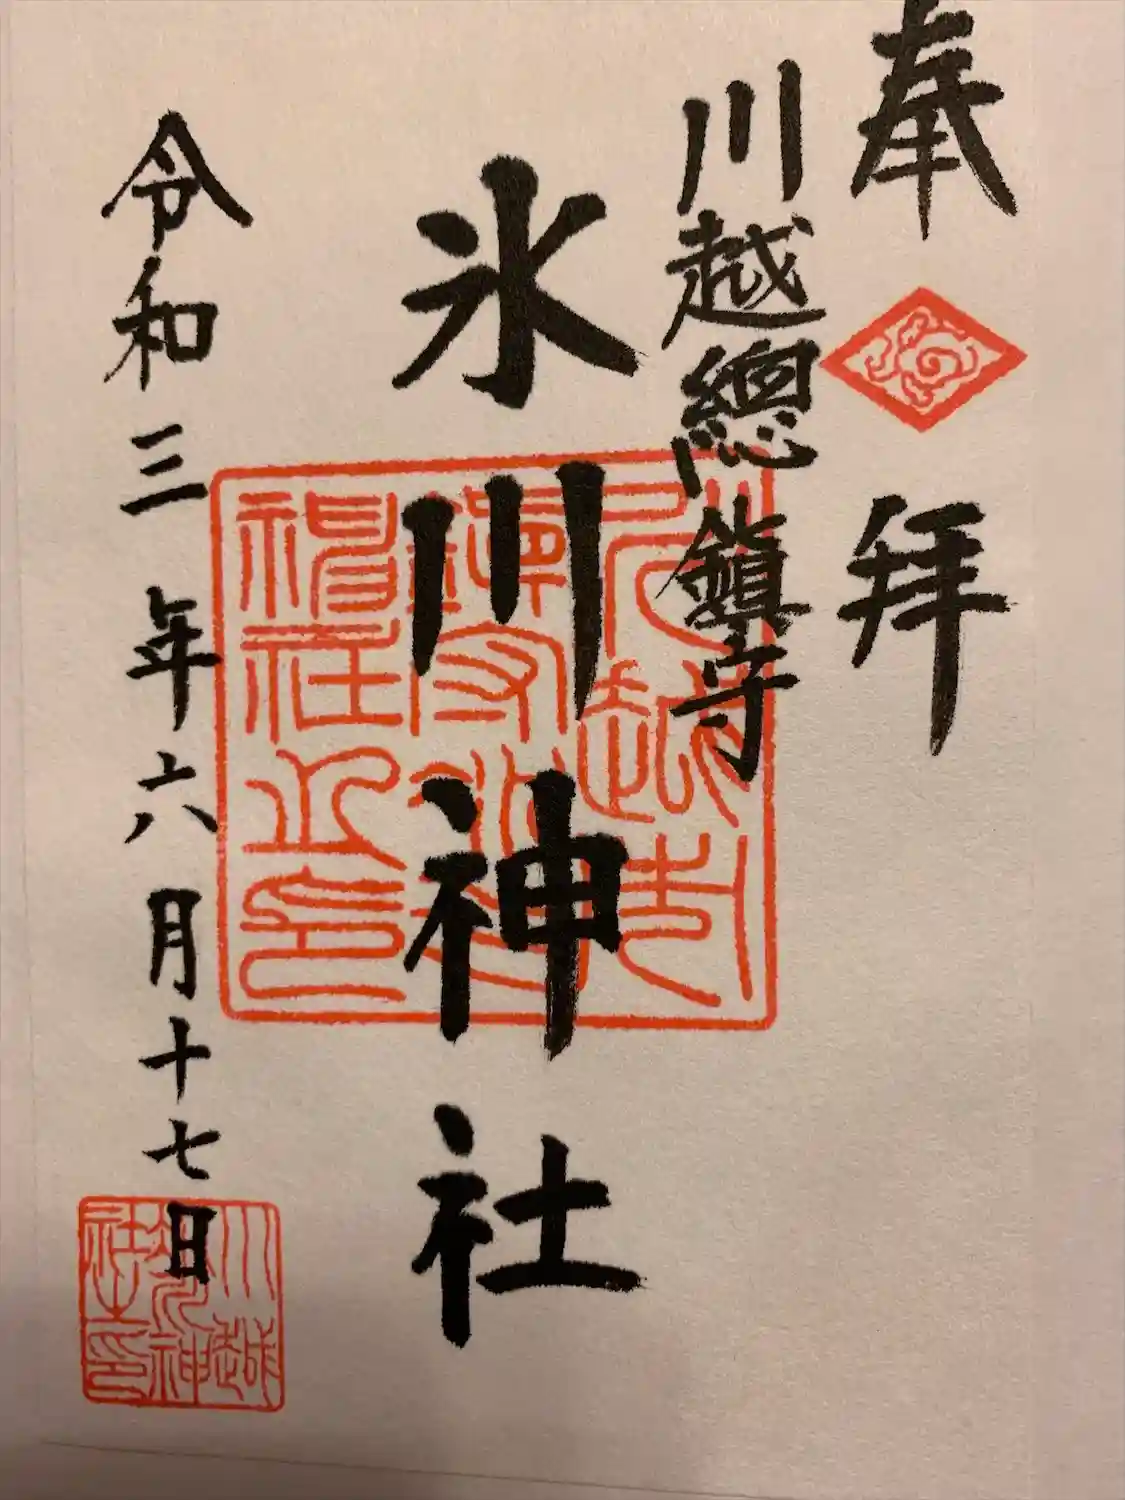 奉拝
川越總鎮守
氷川神社
令和三年六月十七日